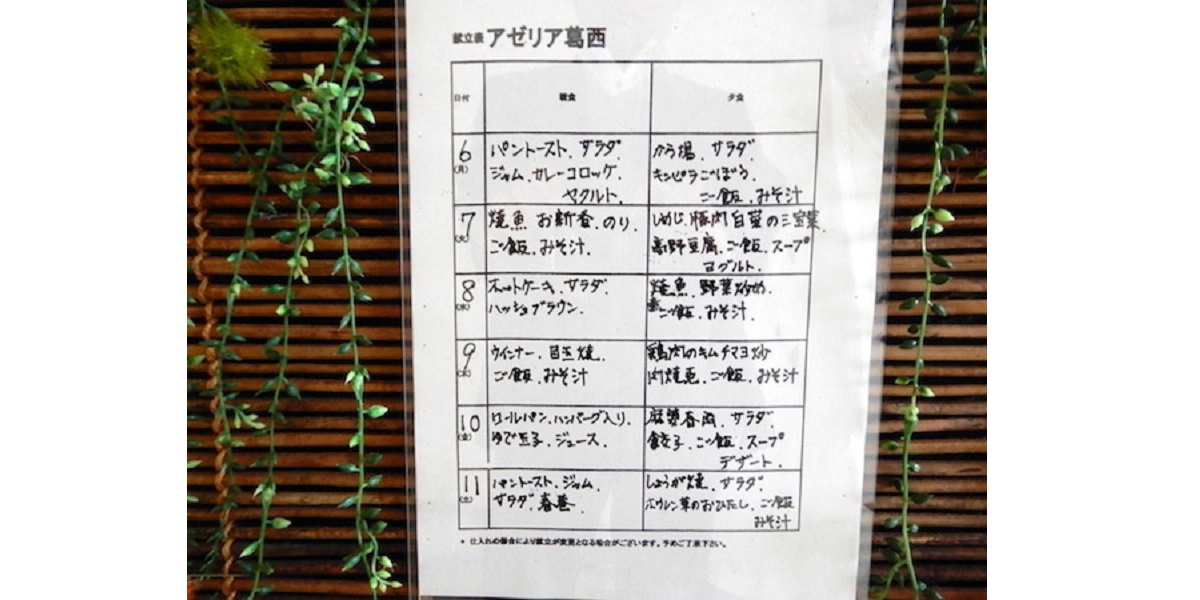 献立表 アゼリア葛西
日付 朝食 夕食
6 (月) パントースト、サラダ、
ジャム、カレーコロッケ、
ヤクルト、
から揚、サラダ、
キンピラごぼう、
ご飯、みそ汁
7 (火) 焼魚 お新香、のり、
ご飯、みそ汁、
しめじ、豚肉 白菜の三宝菜、
高野豆腐、ご飯、スープ
ヨーグルト、
8 (水) ホットケーキ、サラダ、
ハッシュブラウン、
焼魚、野菜炒め、
ご飯、みそ汁、
9 (木) ウインナー、目玉焼、
ご飯、みそ汁
鶏肉のキムチマヨ炒
ご飯、みそ汁
10 (金) ロールパン、ハンバーグ入り、
ゆで玉子、ジュース、
麻婆春雨、サラダ、
餃子、ご飯、スープ
デザート、
11 (土) パントースト、ジャム、
サラダ、春巻、
しょうが焼、サラダ、
ホウレン草のおひたし、ご飯
みそ汁
* 仕入れの都合により献立が変更となる場合がございます。予めご了承下さい。